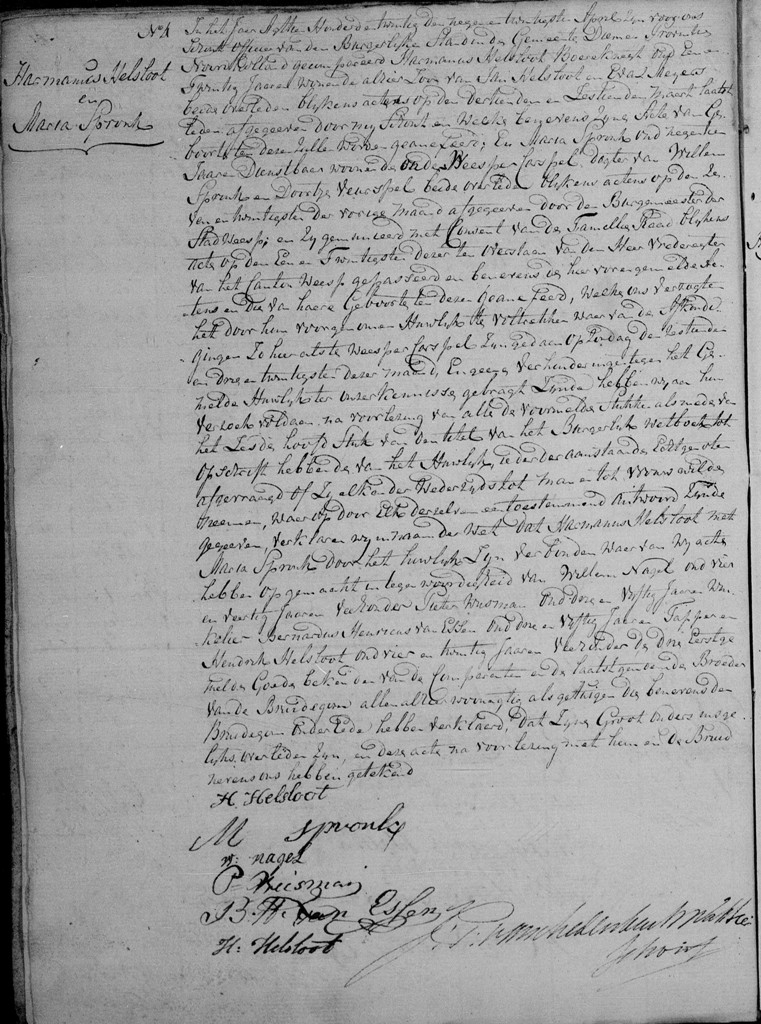 No 4
Harmanus Helsloot
en
Maria Spronk
In het Jaar Agtien Honderd en twintig den negen en twintigsten April zyn voor ons
Schout officier van den Burgerlyke Stand in de Gemeente Diemen Provintie
Noord Holland gecompareerd Harmanus Helsloot Boereknegt oud Een en
Twintig Jaaren wonende alhier Zoon van Jan Helsloot en Eva Meyers
beide overleden blykens actens op den dertienden en Zestienden maart laatst
leden afgegeeven door my Schout en welke benevens zyne Acte van Ge
boorte ten deze zulle worden geannexeerd; En Maria Spronk oud negentien
Jaare Dienstbaar woonende onder Weesper Carspel dogter van Willem
Spronk en Doortje beide overleden blykens actens op den Ze
ven en twintigsten der vorige maand afgegeeven door den Burgemeester der
Stad Weesp; en Zy gemuniceerd met Consent van de Famillie Raad blykens
acte op den Een en Twintigsten dezer ten overstaan van den Heer Vrederegter
van het Canton Weesp gepasseerd en benevens de hier vorengemelde Ac
tens en die van haare Geboorte ten deze geannexeerd, welke ons verzogten
het door hun voorgenomen Huwlyk te voltrekken waar van de Afkondi
gingen Zo hier als te Weesper Carspel zyn gedaan op Zondag den Zestiende
en drie en twintigsten dezer maand, En geene verhinderinge tegen het Ge
melde Huwlyk ter onzer kennisse gebragt Zynde hebben wy aan hun
verzoek voldaan na voorlezing van alle de voormelde stukke als mede van
het Zesde hoofd stuk van den titel van het Burgerlyk wetboek tot
opschrift hebbende van het Huwlyk, ieder der aanstaande Echtgenoten
afgevraagd of Zy elkander wederzyds tot man en tot vrouw wilde
neemen, waar op door Elk derselver een toestemmend antwoord Zynde
gegeeven, verklaren wy in naam der Wet dat Harmanus Helsloot met
Maria Spronk door het huwlyk Zyn verbonden waar van wy acte
hebben opgemaakt in tegenwoordigheid van Willem Nagel oud vier
en veertig Jaaren Veehouder Pieter Wisman oud drie en vyftig Jaaren Win
kelier Bernardus Henricus van Essen oud drie en vyftig Jaaren Tapper en
Hendrik Helsloot oud vier en twintig Jaaren Veehouder de drie Eerstge
melde Goede bekende van de Comparenten en de laatstgenoemde Broeder
van de Bruidegom allen alhier woonagtig als getuigen die benevens den
Bruidegom onder Eede hebben verklaard, dat Zyne Groot ouders insge
lyks overleden zyn, en deze acte na voorlezing met hem en de Bruid
nevens ons hebben getekend
H. Helsloot
M Spronk
W: nagel
P Wisman
B. H. van Essen
H: Helsloot
Schout